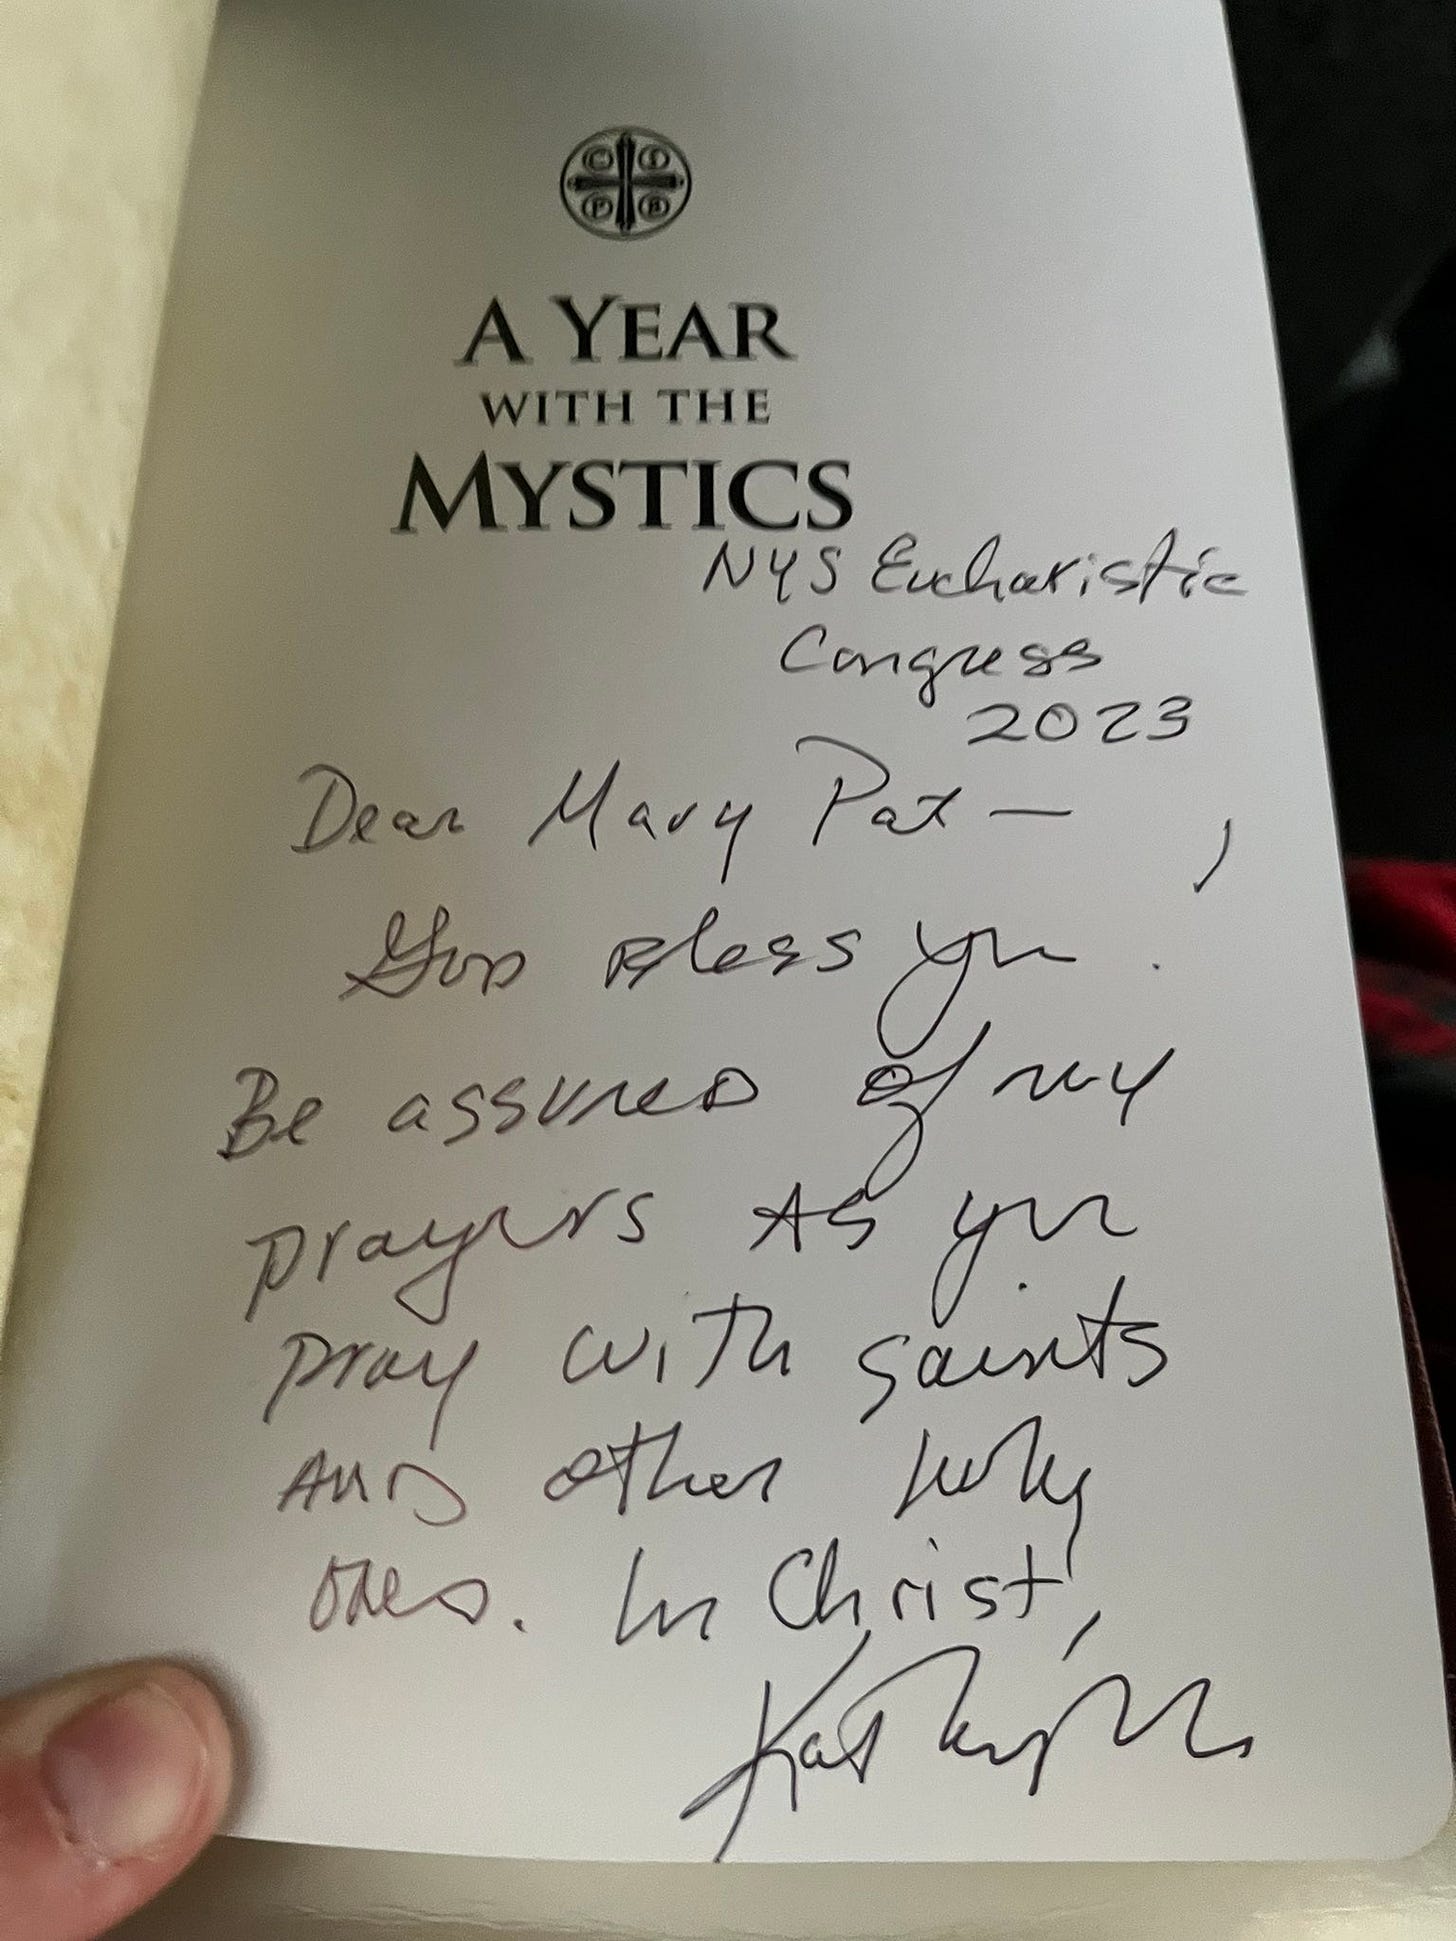 C S
P B
A YEAR
WITH THE
MYSTICS
NYS Eucharistic
Congress
2023
Dear Mary Pat —
God Bless you.
Be assured of my
prayers As you
pray with saints
And other holy
ones. In Christ,